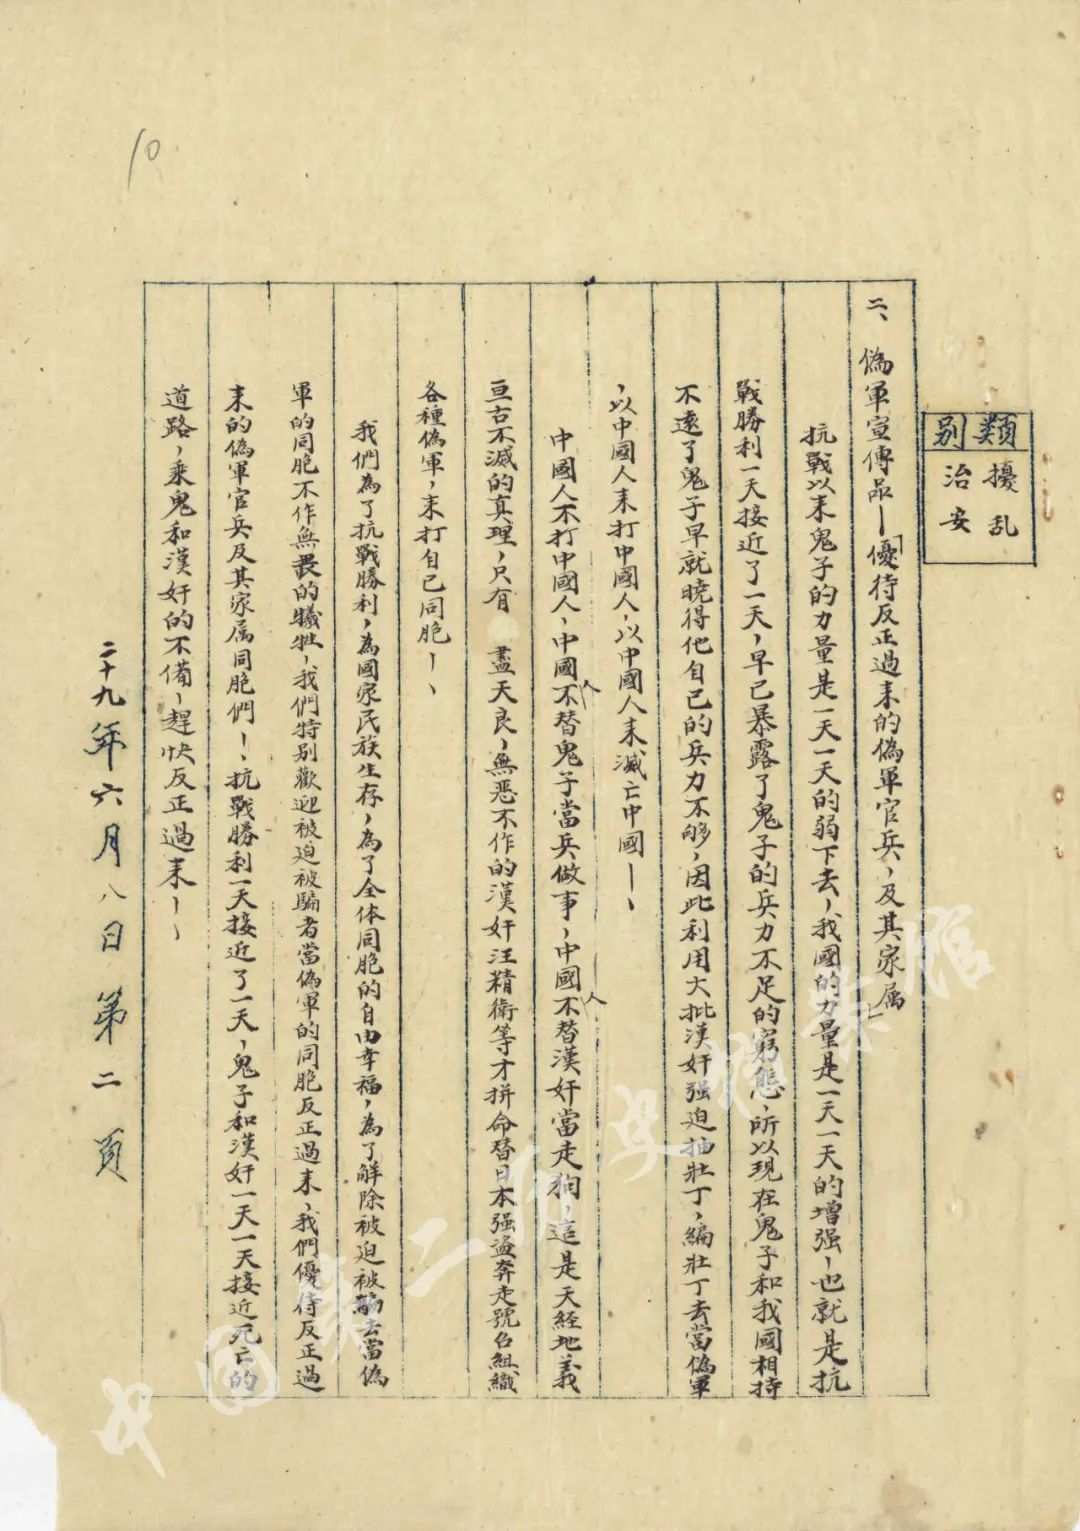 10
類別
擾乱
治安
二、偽軍宣傳品—「優待反正過来的偽軍官兵，及其家属」
抗戰以来鬼子的力量是一天一天的弱下去，我國的力量是一天一天的增强，也就是抗
戰勝利一天接近了一天，早已暴露了鬼子的兵力不足的窮態，所以現在鬼子和我國相持
不遠了鬼子早就曉得他自己的兵力不够，因此利用大批漢奸强迫抽壯丁，編壯丁去當偽軍
，以中國人来打中國人，以中國人来滅亡中國——、
中國人不打中國人，中國人不替鬼子當兵做事，中國人不替漢奸當走狗，這是天經地義
亘古不滅的真理，只有 盡天良，無恶不作的漢奸汪精衛等才拼命替日本强盗奔走號召組織
各種偽軍，来打自己同胞——、
我們為了抗戰勝利，為國家民族生存，為了全体同胞的自由幸福，為了解除被迫被騙去當偽
軍的同胞不作無畏的犠牲，我們特别歡迎被迫被騙者當偽軍的同胞反正過来，我們優待反正過
来的偽軍官兵及其家属同胞們——、抗戰勝利一天接近了一天，鬼子和漢奸一天一天接近死亡的
道路，乘鬼和漢奸的不備，趕快反正過来——、
二十九年六月八日第二頁
中國第二歷史檔案館